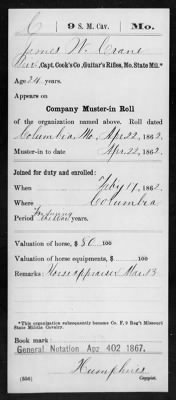 C 9 S. M. Cav. Mo.
James W. Crane
Pvt., Capt. Cook's Co., Guitar's Rifles, Mo. State Mil.*
Age 24 years.
Appears on
Company Muster-in Roll
of the organization named above. Roll dated
Columbia Mo, Apr 22, 1862.
Muster-in to date Apr 22, 1862.
Joined for duty and enrolled:
When Feby 17, 1862.
Where Columbia
Period the war years.
Valuation of horse, $ 80
Valuation of horse equipments, $
Remarks: Horse appraised Mar 13
*This organization subsequently became Co. F, 9 Reg't Missouri
State Militia Cavalry.
Book mark:
General Notation Apr 402 1867.
Humphries
(356) Copyist.